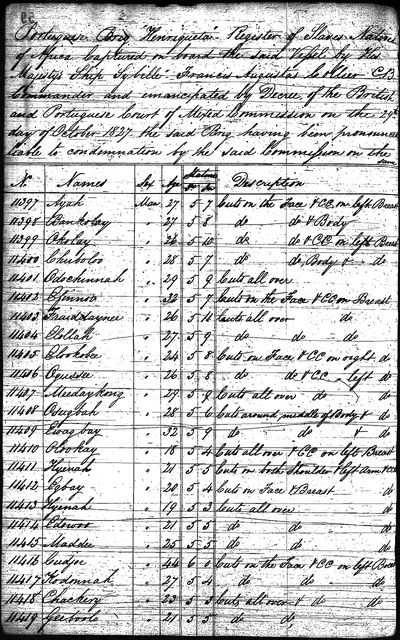 Portuguese Brig "Henriqueta" Register of Slaves Natives
of Africa captured on board the said Vessel by His
Majesty's Ship Sybille Francis Augustus Collier CB
Commander and emancipated by Decree of the British
and Portuguese Court of Mixed Commission on the 29th
day of October 1827 the said Brig having been pronounced
liable to condemnation by the said Commission on the
same
No. Names Sex Age Stature Description
11397 Ajah Man 27 5 7 Cuts on the Face & CC on left Breast
11398 Bankolay " 27 5 8 do do & Body
11399 Okolay " 26 5 10 do do & CC on left Breast
11400 Chuboloo " 28 5 7 do do, Body & do
11401 Odochennah " 29 5 9 Cuts all over
11402 " 32 5 7 Cuts on the Face & CC on Breast
11403 " 26 5 Cuts all over do
11404 Ellollah " 27 5 9 do do do
11405 " 24 5 8 Cuts on Face & CC on right do
11406 Ogussee " 26 5 8 do do & CC left do
11407 " 29 5 Cuts all over do do
11408 Osugbah " 28 5 6 Cuts around middle of Body & do
11409 Ewagbay " 32 5 9 do do & do
11410 Olookay " 18 5 4 Cuts all over & CC on left Breast
11411 Hyenah " 21 5 5 Cuts on both Shoulder & left arm & CC
11412 Egbay " 20 5 4 Cuts on Face & Breast do
11413 Hyenah " 19 5 3 Cuts all over do
11414 Edowoo " 21 5 5 do do do
11415 Maddee " 25 5 5 do do do
11416 Cudjoe " 44 6 0 Cuts on the Face & CC on left Breast
11417 Kodonnah " 27 5 4 do do do
11418 Chackery " 23 5 3 Cuts all over & do do
11419 " 21 5 5 do do do